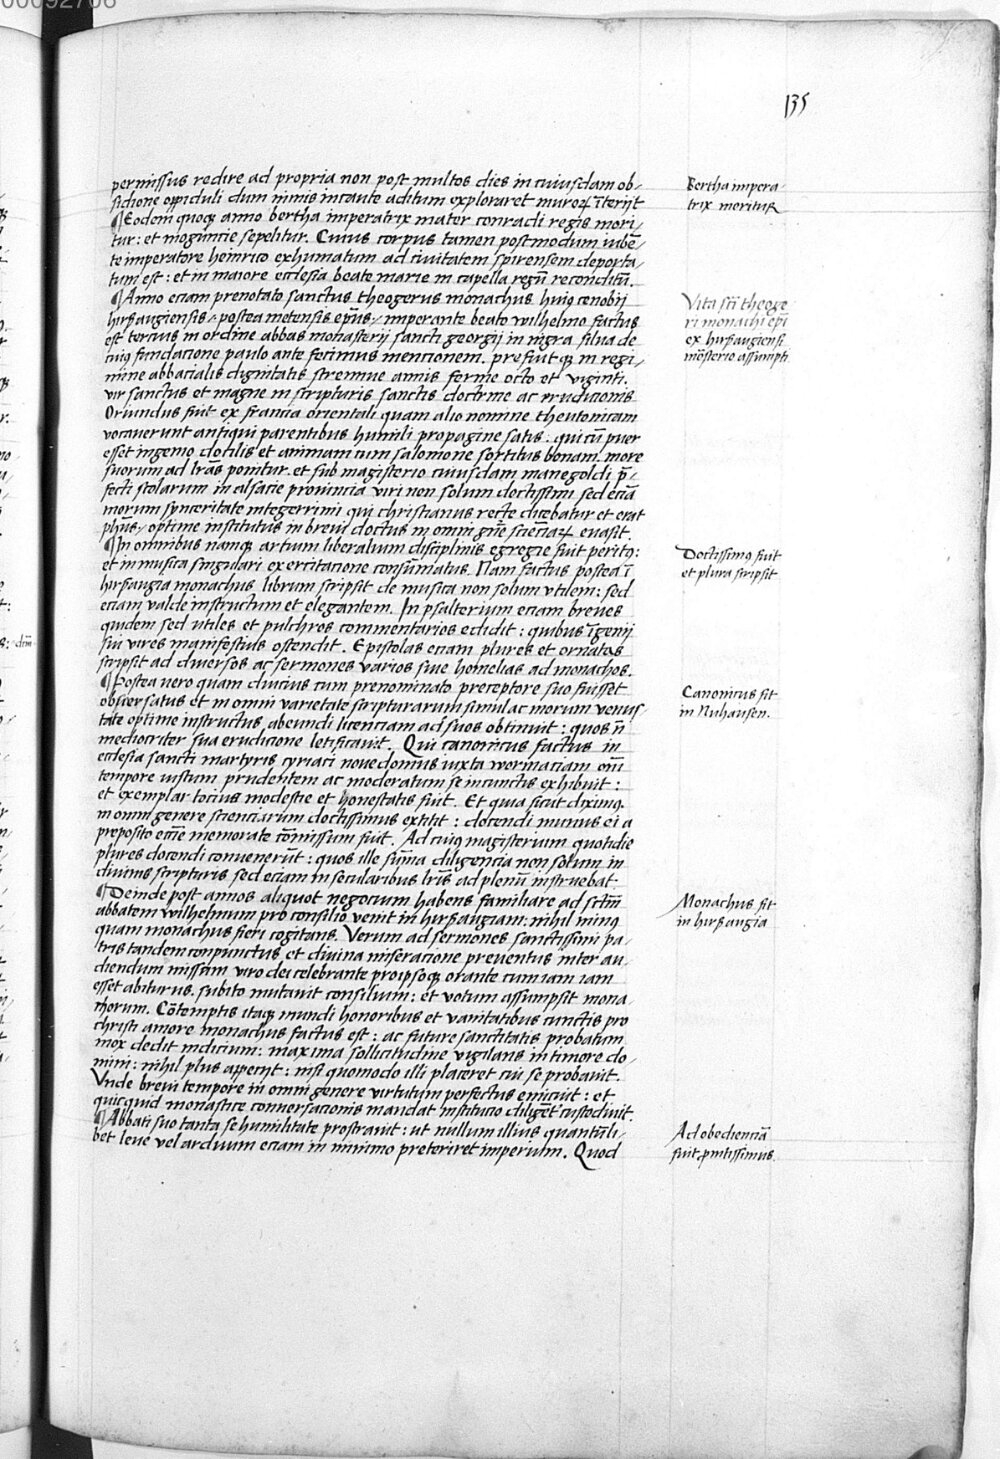 135
permissus redire ad propria non post multos dies in cuiusdam ob-
sidione oppiduli dum nimis incaute aditum exploraret muroꝝ īteriit
¶Eodem quoqꝫ anno bertha imperatrix mater conradi regis mori-
tur: et moguncie sepelitur. Cuius corpus tamen postmodum iubē-
te imperatore heinrico exhumatum ad ciuitatem spirensem deporta-
tum est: et in maiore ecclesia beate marie in capella regū reconditū.
¶Anno eciam prenotato sanctus theogerus monachus huiꝯ cenobij
hirsaugiensis, postea metensis ep̄us, imperante beato wilhelmo factus
est tercius in ordine abbas monasterij sancti georgij in nigra silua de
cuiꝯ fundacione paulo ante fecimus mencionem. prefuitqꝫ in regi-
mine abbacialis dignitatis strennue annis ferme octo et viginti.
vir sanctus et magne in scripturis sanctis doctrine ac erudicionis
Oriundus fuit ex francia orientali quam alio nomine theutonicam
vocauerunt antiqui parentibus humili propagine satus: qui cū puer
esset ingenio docilis et animam cum salomone sortitus bonam. more
suorum ad lr̄as ponitur. et sub magisterio cuiusdam manegoldi p̄-
fecti scolarum in alsacie prouincia viri non solum doctissimi sed eciā
morum synceritate integerrimi qui christianus recte dicebatur et erat
ph̄us, optime institutus in breui doctus in omni gn̄e scienciaꝝ euasit.
¶In omnibus namqꝫ artum liberalium disciplinis egregie fuit peritꝯ:
et in musica singulari exercitacione consūmatus. Nam factus postea ī
hirsaugia monachus librum scripsit de musica non solum vtilem: sed
eciam valde instructum et elegantem. In psalterium eciam breues
quidem sed utiles et pulchros commentarios edidit: quibus īgenij
sui vires manifestius ostendit. Epistolas eciam plures et ornatas
scripsit ad diuersos ac sermones varios siue homelias ad monachos.
¶Postea vero quam diucius cum prenominato preceptore suo fuisset
obseruatus et in omni varietate scripturarum simul ac morum venus-
tate optime instructus, abeundi licenciam ad suos obtinuit: quos n̄
mediocriter sua erudicione letificauit. Qui canonicus factus in
ecclesia sancti martyris cyriaci noue domus iuxta wormaciam om̄i
tempore iustum prudentem ac moderatum se in cunctis exhibuit:
et exemplar tocius modestie et honestatis fuit. Et quia sicut diximꝯ
in omni genere scienciarum doctissimus extitit: docendi munus ei a
preposito eccīe memorate cōmissum fuit. Ad cuiꝯ magisterium quotidie
plures docendi conuenerūt: quos ille sūma diligencia non solum in
diuinis scripturis sed eciam in secularibus lr̄is ad plenū instruebat.
¶Deinde post annos aliquot negocium habens familiare ad sctm̄
abbatem wilhelmum pro consilio venit in hirsaugiam: nihil minus
quam monachus fieri cogitans. Verum ad sermones sanctissimi pa-
tris tandem conpunctus et diuina miseracione preuentus inter au-
diendum missam viro dei celebrante pro ipsoqꝫ orante cum iam iam
esset abiturus. subito mutauit consilium: et votum assumpsit mona-
chorum. Cōtemptis itaqꝫ mundi honoribus et vanitatibus cunctis pro
christi amore monachus factus est: ac future sanctitatis probatum
mox dedit indicium: maxima sollicitudine vigilans in timore do-
mini: nihil plus appecijt: nisi quomodo illi placeret cui se probauit.
Vnde breui tempore in omni genere virtutum perfectus emicuit: et
quicquid monastice conuersacionis mandat institucio diligēt custodiuit.
¶Abbati suo tanta se humilitate prostrauit: ut nullum illius quantūli-
bet leue vel arduum eciam in minimo preteriret imperium. Quod
Bertha impera-
trix moritur
Vita sc̄ti theoge
ri monachi ep̄i
ex hirsaugiensi
mōsterio assumpti
Doctissimꝯ fuit
et plura scripsit
Canonicus fit
in Nuhausen.
Monachus fit
in hirsaugia
Ad obedienciā
fuit ꝓmtissimus.